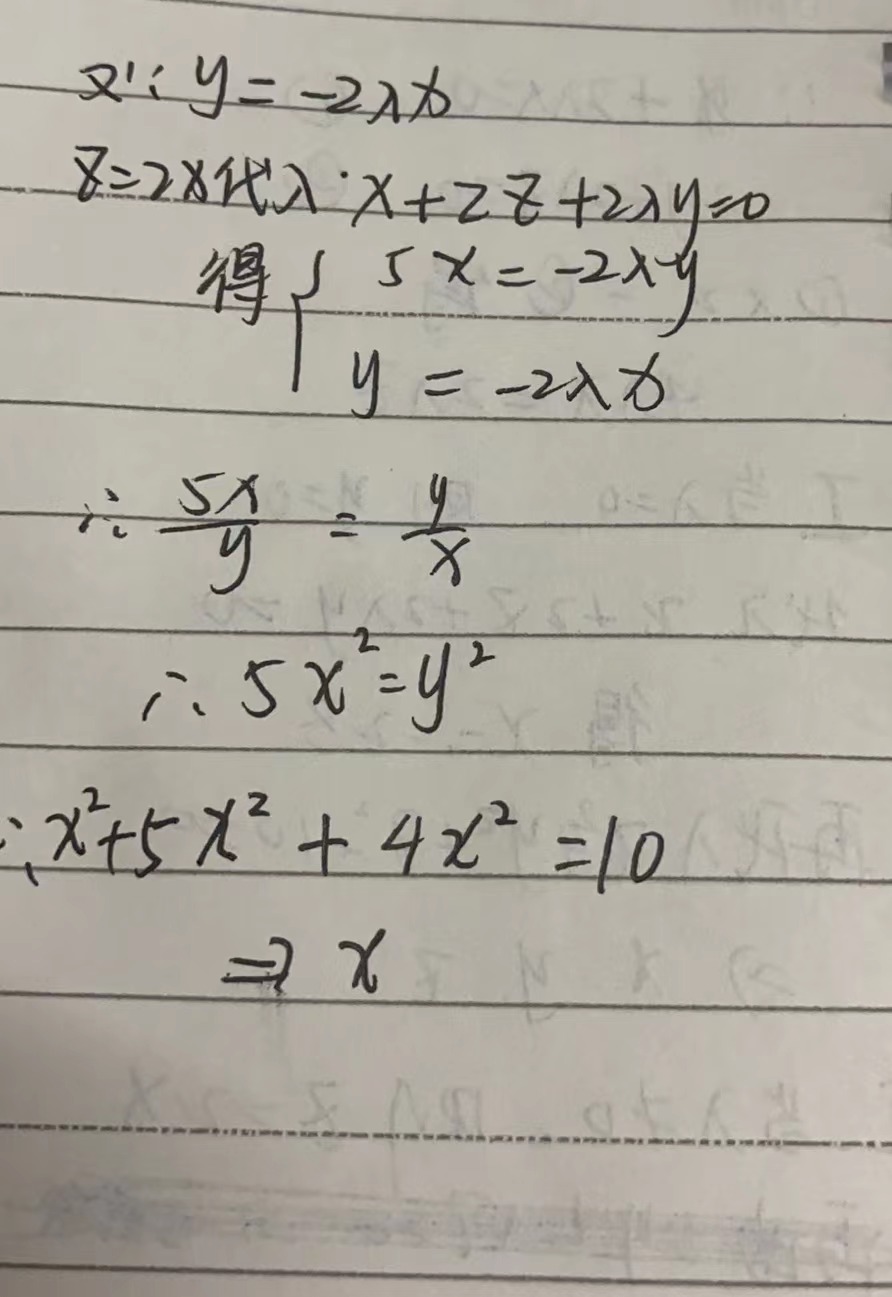 又∵ y = -2λx
z=2x代入 x+2z+2λy=0
得 { 5x = -2λy
y = -2λx
∴ 5x/y = y/x
∴ 5x²=y²
∵ x²+5x²+4x²=10
⇒ x